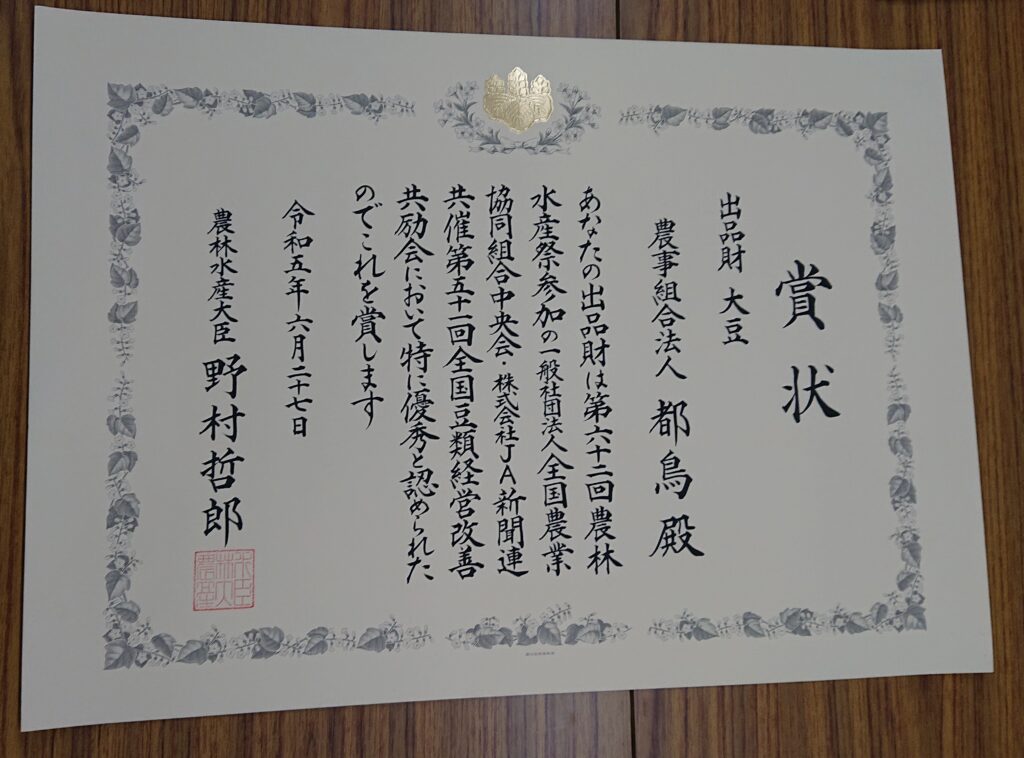 賞状
出品財 大豆
農事組合法人 都鳥 殿
あなたの出品財は第六十二回農林
水産祭参加の一般社団法人全国農業
協同組合中央会・株式会社JA新聞連
共催第五十一回全国豆類経営改善
共励会において特に優秀と認められた
のでこれを賞します
令和五年六月二十七日
農林水産大臣 野村哲郎